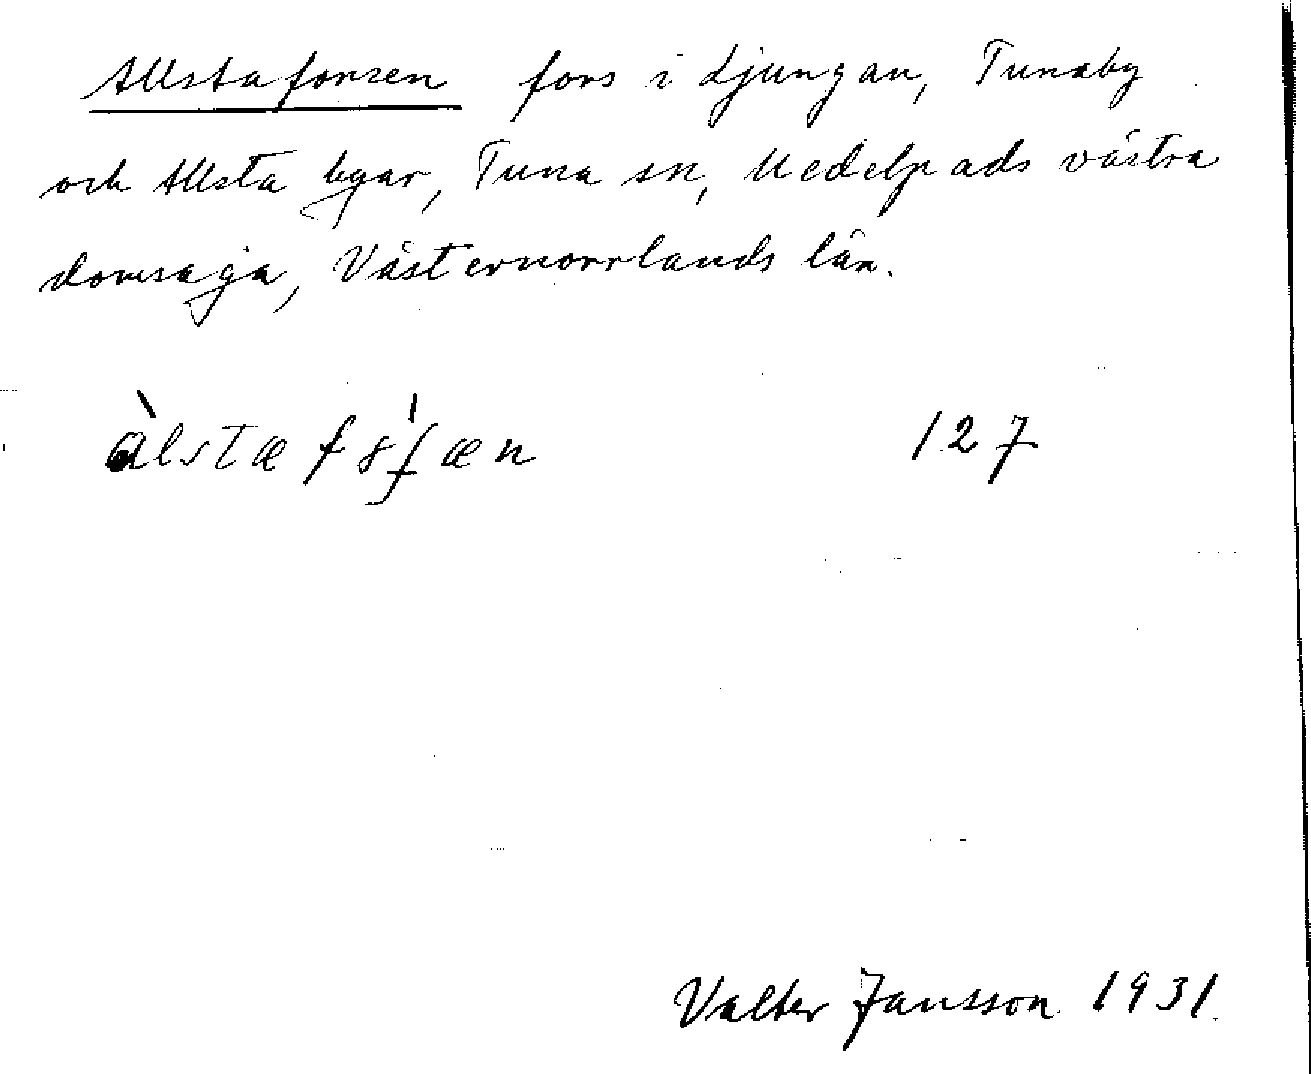 Allstaforsen fors i Ljungan, Tunaby
och Allsta byar, Tuna sn, Medelpads västra
domsaga, Västernorrlands län.
àlstæfꞩʃæn 127
Valter Jansson 1931.